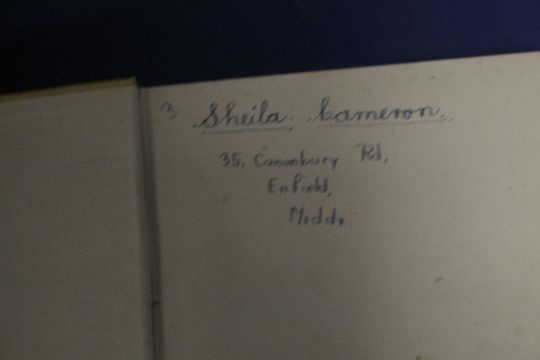 Sheila Cameron.
35, Canonbury Rd,
Enfield,
Middx.